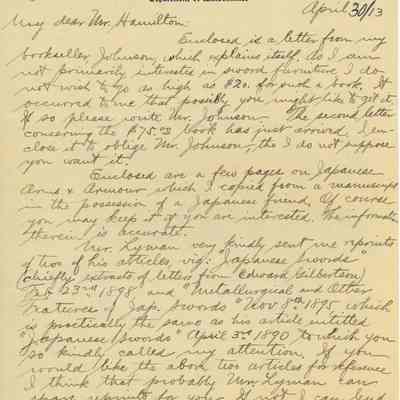 April 30/13
My dear Mr. Hamilton:
Enclosed is a letter from my
bookseller, Johnson, which explains itself. As I am
not primarily interested in sword furniture I do
not wish to go as high as $20. for such a book. It
occurred to me that possibly you might like to get it.
If so please write Mr. Johnson. The second letter
concerning the $75.00 book has just arrived, I en-
close it to oblige Mr. Johnson, tho I do not suppose
you want it.
Enclosed are a few pages on Japanese
Arms & Armour which I copied from a manuscript
in the possession of a Japanese friend. Of course
you may keep it if you are interested. The information
therein is accurate.
Mr. Lyman very kindly sent me reprints
of two of his articles, viz: "Japanese Swords"
(chiefly extracts of letters from Edward Gilbertson)
Feb 23rd 1898 and "Metallurgical and Other
Features of Jap. Swords" Nov 8th 1895 which
is practically the same as his article entitled
"Japanese Swords" April 3rd 1890 to which you
so kindly called my attention. If you
would like the above two articles for reference
I think that probably Mr. Lyman can
spare reprints for you. If not I can lend